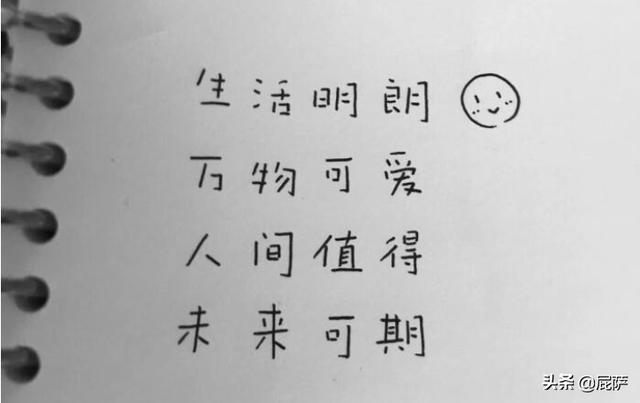 生活明朗
万物可爱
人间值得
未来可期
头条 @屁萨